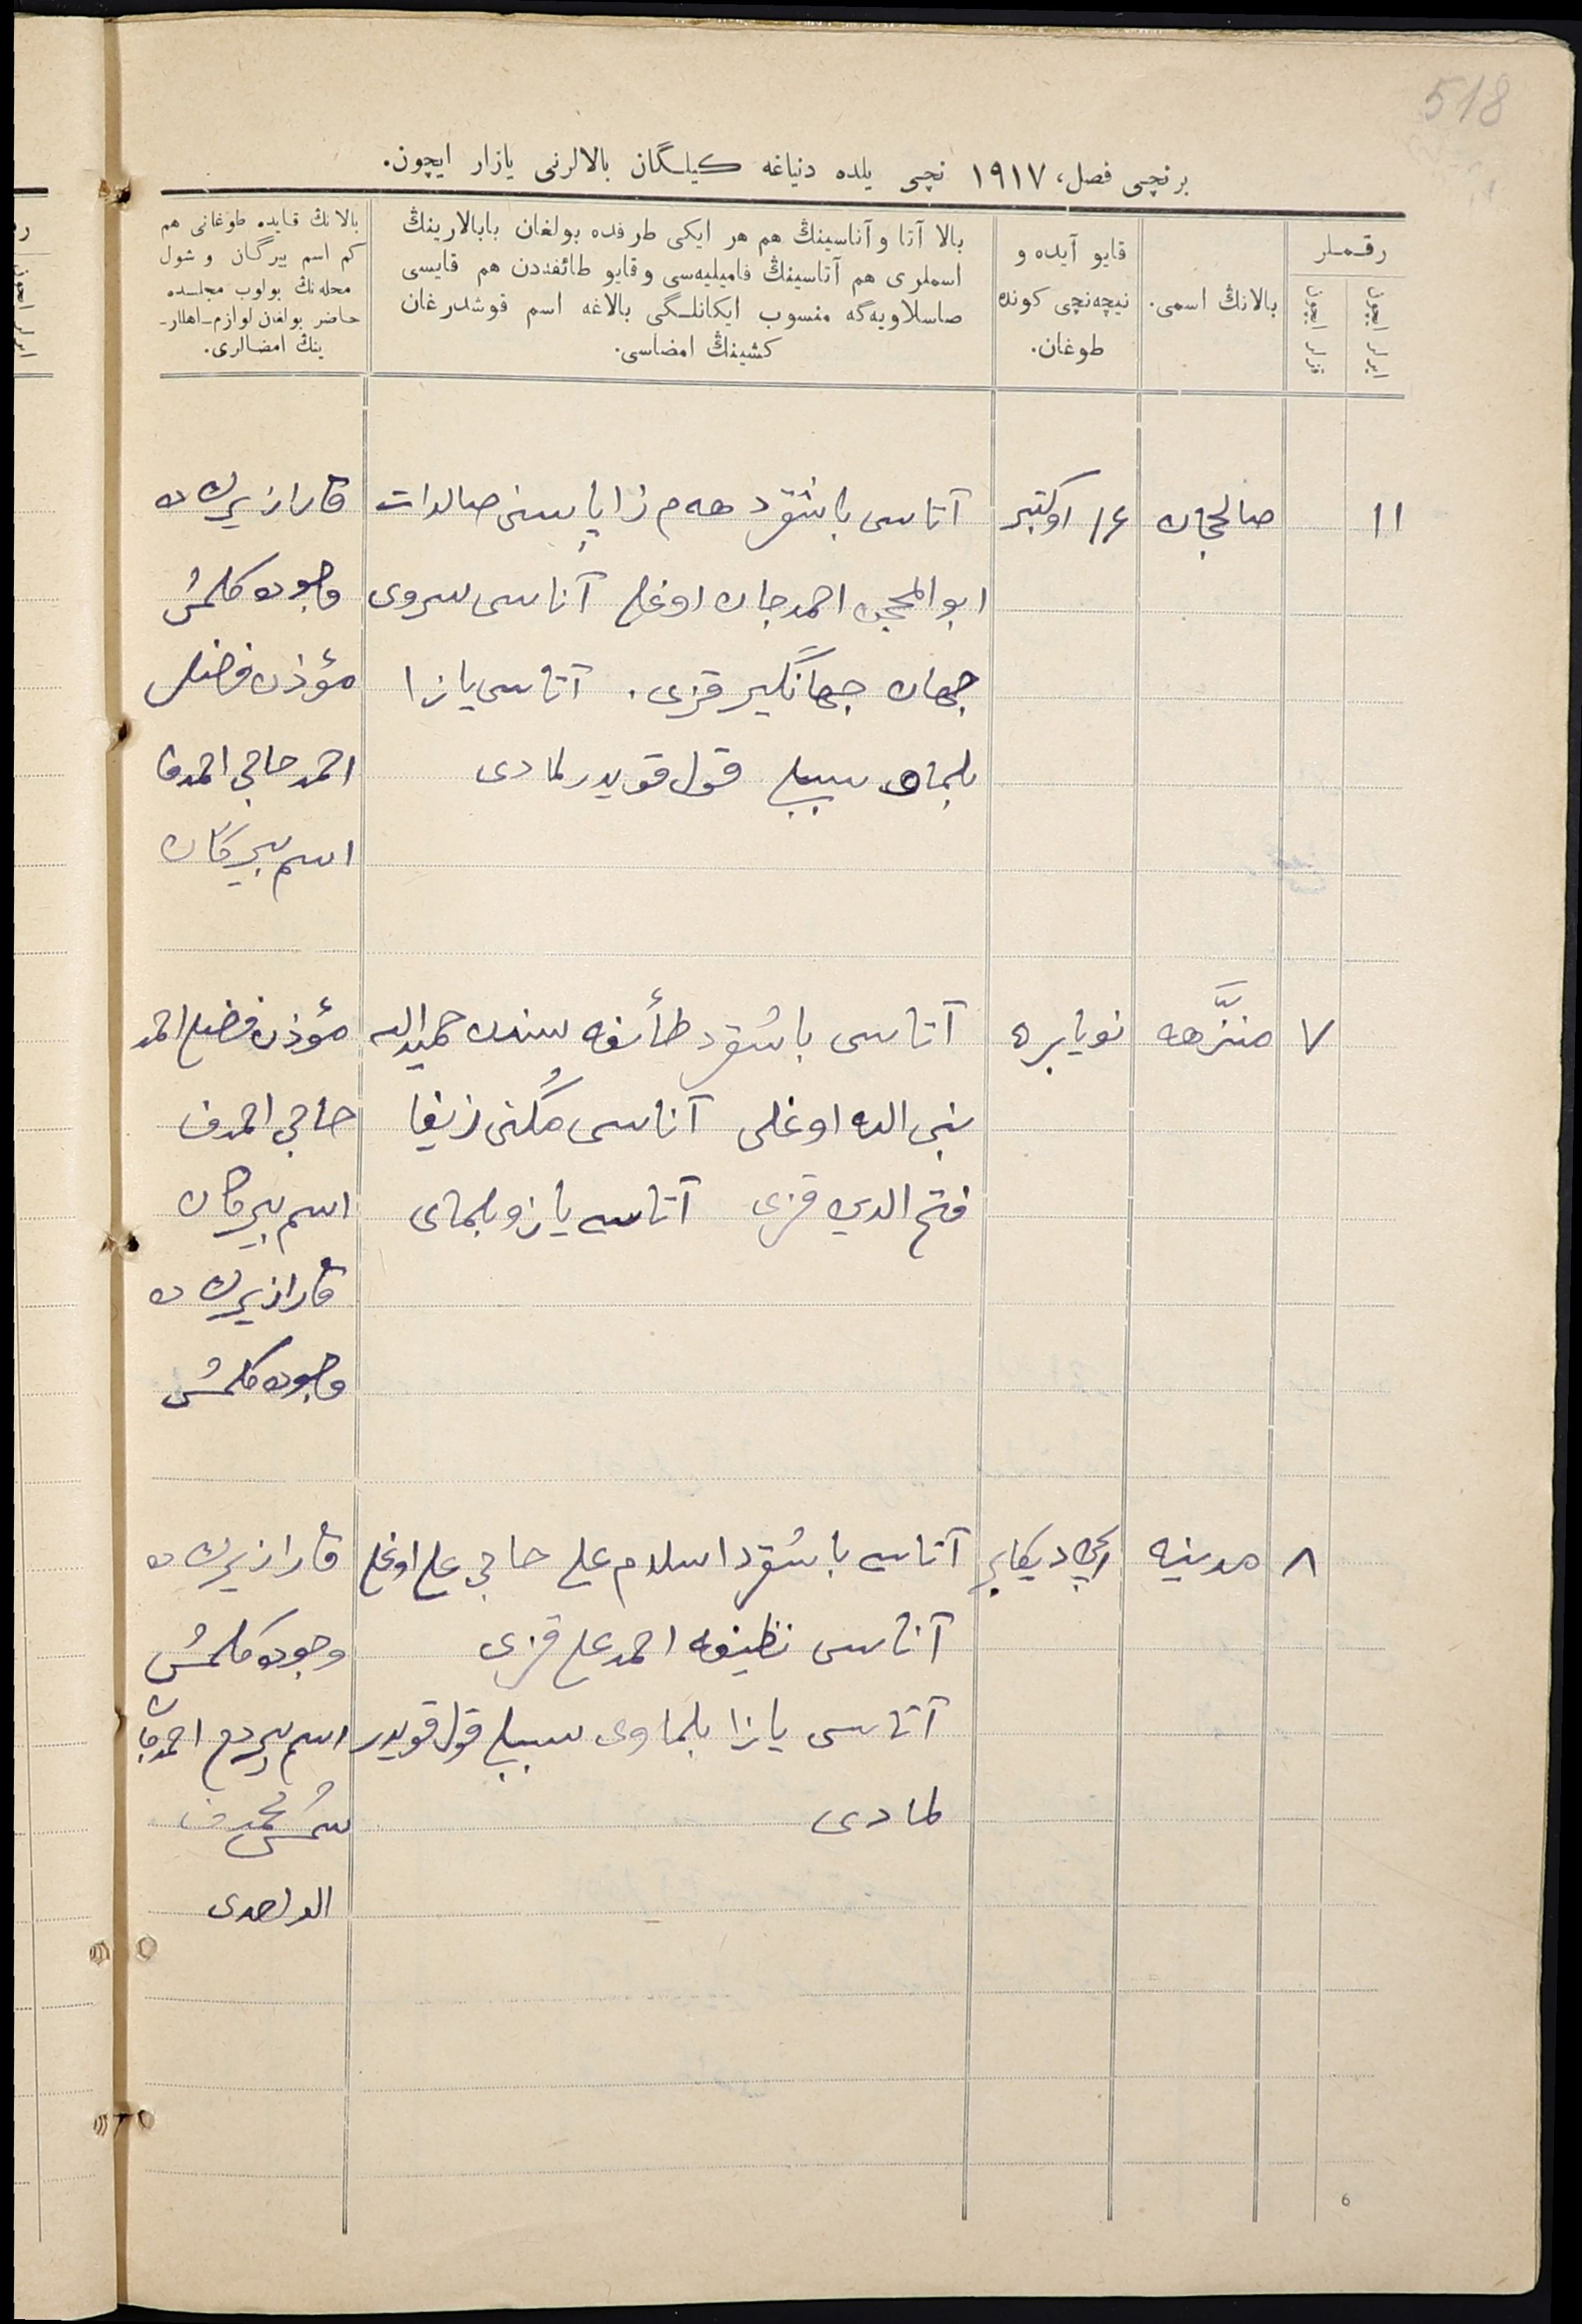 518
برنچی فصل، ۱۹۱۷ نچی یلده دنیاغه کیلگان بالالرنی یازار ایچون.
رقملر
ایرلر ایچون
قزلر ایچون
بالانڭ اسمی.
قایو آیده و
نیچه‌نچی کونده
طوغان.
بالا آتا و آناسینڭ هم هر ایکی طرفده بولغان بابالارینڭ
اسملری هم آتاسینڭ فامیلیه‌سی و قایو طائفه‌دن هم قایسی
صاسلاویه‌گه منسوب ایکانلگی بالاغه اسم قوشدرغان
کشینڭ امضاسی.
بالانڭ قایده طوغانی هم
کم اسم بیرگان و شول
محله‌نڭ بولوب مجلسده
حاضر بولغان لوازم-اهللر-
ینڭ امضالری.
۱۱
صالحجان
۱۶ اوکتبر
آتاسی باشقرد هم زاپاسنی صالدات
ابو احمدجان اوغلی آناسی سروی
جهان جهانگیر قزی. آتاسی یازا
بلماو سببلی قول قویدرلمادی
قارازیرك ده
وجوده کلمش
مؤذن فضل
احمد حاجی احمدف
اسم بیرکان
۷
منزَّهه
نویابر ۵
آتاسی باشقرد طائفه سندن حمیدالله
نبی الله اوغلی آناسی زلیفا
فتح الدین قزی آتاسی یازو بلمای
مؤذن فضل احمد
حاجی احمدف
اسم بیرکان
قارازیرك ده
وجوده کلمش
۸
مدینه
دیکابر
آتاسی باشقرد اسلام علی حاجی علی اوغلی
آناسی نظیفه احمد علی قزی
آتاسی یازا بلماوی سببلی قول قویدر
لمادی
قارازیرك ده
وجوده کلمش
اسم بیردم احمدجان
شمس محمدف
6